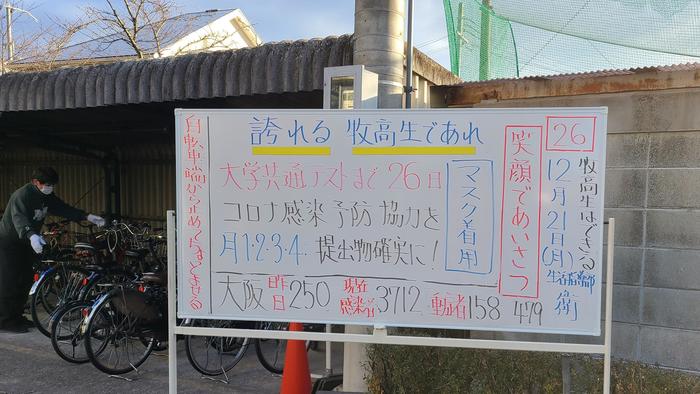 誇れる 牧高生であれ
大学共通テストまで26日
コロナ感染予防協力を
月1・2・3・4. 提出物確実に!
大阪 昨日250 現在感染者3712 重症者158 479
マスク着用
笑顔であいさつ
26
牧高生はできる
12月21日(月)
生活指導部
衛
自転車端から止めくなどさせる